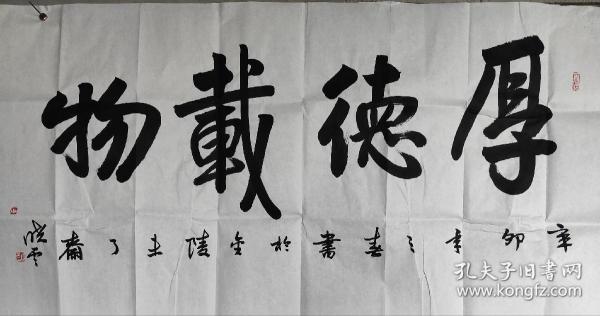 厚德載物
辛卯年之春書於金陵未了齋
曉雲
孔夫子旧书网
www.kongfz.com